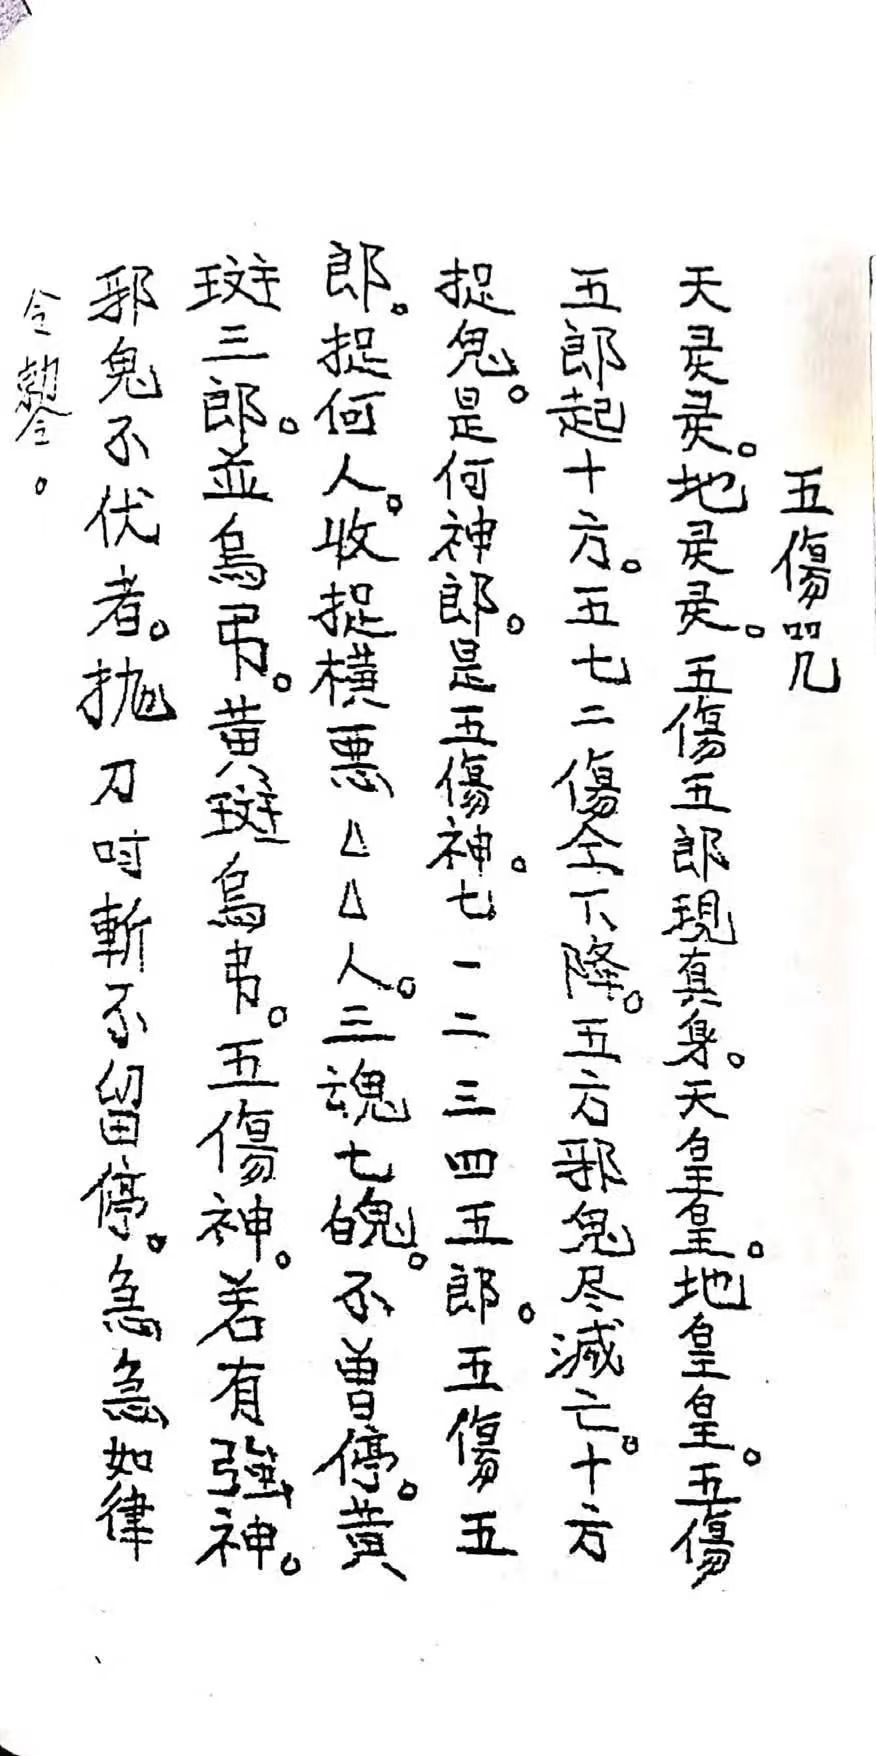 五傷咒
天灵灵。地灵灵。五傷五郎現真身。天皇皇。地皇皇。五傷
五郎起十方。五七二傷全下降。五方邪鬼尽滅亡。十方
捉鬼。是何神郎。是五傷神。七一二三四五郎。五傷五
郎。捉何人。收捉橫悪△△人。三魂七魄。不曽停。黄
斑三郎。並烏弔。黄斑烏弔。五傷神。若有強神。
邪鬼不伏者。抛刀吋斬不留停。急急如律
令勅令。